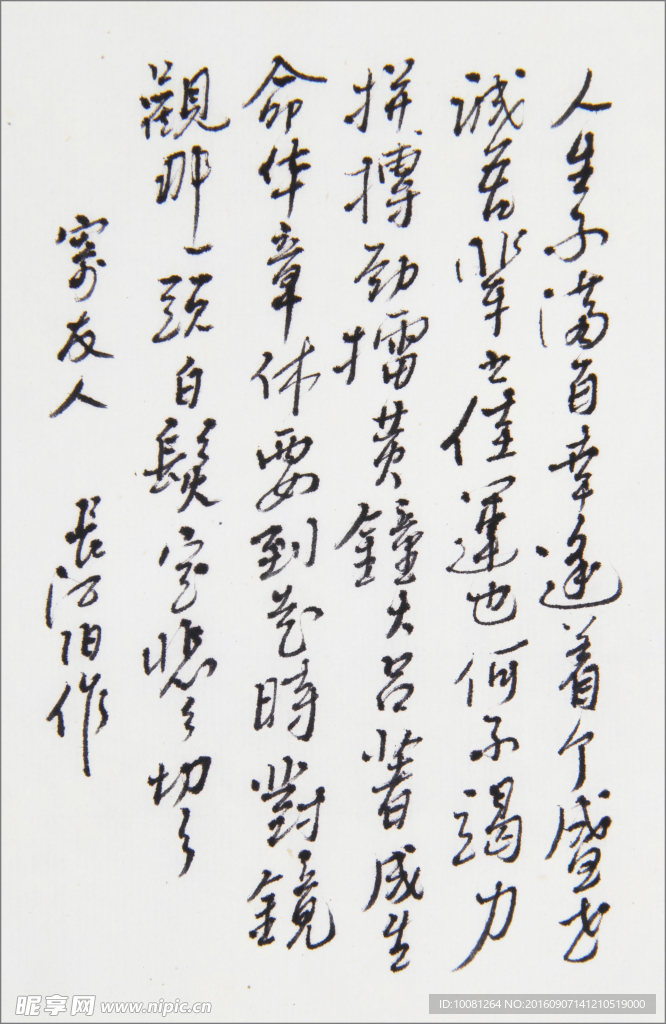 人生不滿百幸逢着个盛世
诚吾輩之佳運也何不竭力
拼搏劲擂黄鐘大吕普成生
命华章休要到老時對鏡
觀那一頭白髮空悲々切々
寄友人 長江伯作
昵享网 www.nipic.cn
ID:10081264 NO:20160907141210519000